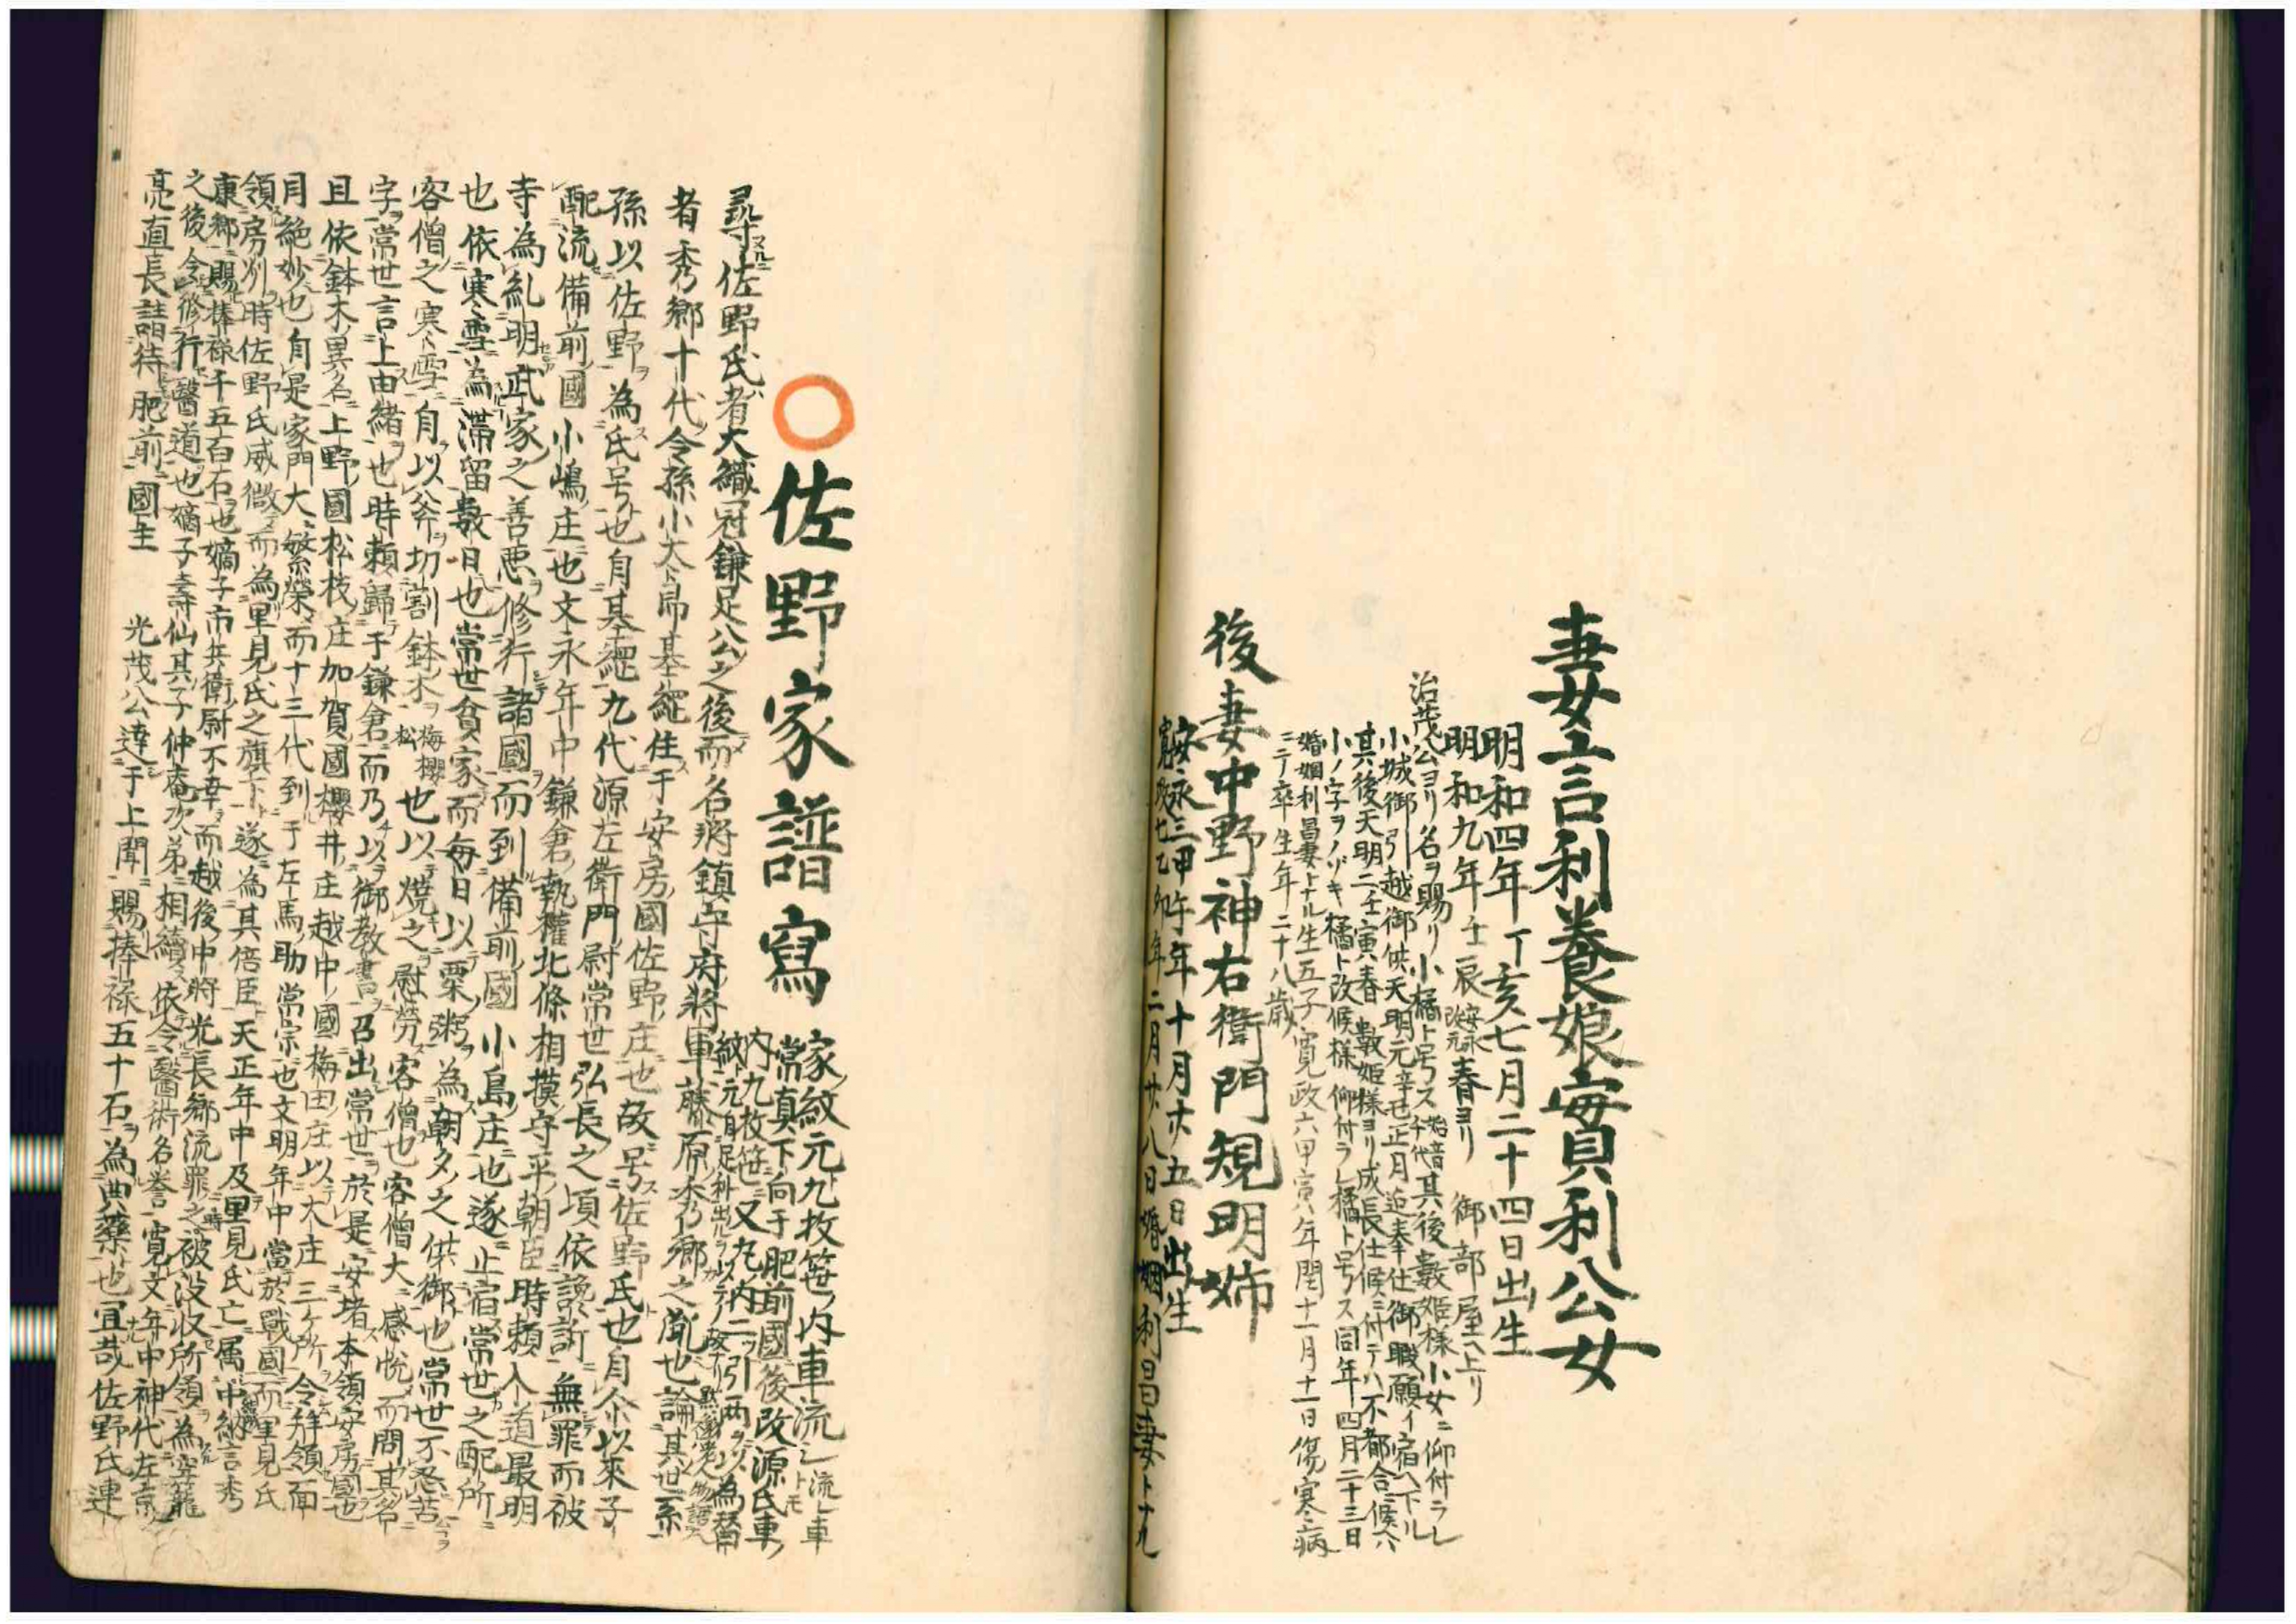 妻女言利養娘實利公女
明和四年丁亥七月二十四日出生
明和九年壬辰安永改元春ヨリ御部屋ヘ上リ
治茂公ヨリ名ヲ賜リ小橘ト号ス其後數姫様小女ニ仰付ラレ
小城御引越御供天明元辛丑正月迄奉仕御職願イ宿ヘ下ル
其後天明二壬寅春數姫様ヨリ成長仕候ニ付テハ不都合ニ候ハ
小ノ字ヲノゾキ橘ト改候様仰付ラレ橘ト号ス同年四月二十三日
婚姻利昌妻トナル生五子寛政六甲寅年閏十一月十一日傷寒病
ニテ卒生年二十八歳
後妻中野神右衛門規明姉
安永三甲午年十月廿五日出生
寛政七乙卯年二月廿八日婚姻利昌妻トナル
佐野家譜寫
家紋元九枚笹ノ内車流シ流シ車トモ
常真下向于肥前國後改源氏車
内九枚笹又丸内二引両ヲ以為替
紋
尋スルニ佐野氏者ハ大織冠鎌足公之後而名將鎮守府將軍藤原秀郷之胤也論其世系
者秀郷十代令孫小太郎基綱住于安房國佐野庄也故号佐野氏也自尒以來子
孫以佐野為氏号也自基綱九代源左衛門尉常世弘長之頃依讒訴無罪而被
配流備前國小嶋庄也文永年中鎌倉執權北條相摸守平朝臣時頼入道最明
寺為糺明武家之善悪修行諸國而到備前國小島庄也遂止宿常世之配所
也依寒雪為滞留數日也常世貧家而毎日以粟粥為朝夕之供御也常世不忍苦
客僧之寒雪自以斧切割鉢木梅櫻松也以焼之慰勞客僧也客僧大感悦而問其名
字常世言上由緒也時頼歸于鎌倉而乃以御教書召出常世於是安堵本領安房國也
且依鉢木異名上野國松枝庄加賀國櫻井庄越中國梅田庄以大庄三ヶ所令拜領面
目絶妙也自是家門大繁榮而十三代到于左馬助常宗也文明年中當於戰國而里見氏
領房州時佐野氏威微而為里見氏之旗下遂為其倍臣天正年中及里見氏亡属中納言秀
康郷賜捧禄千五百石也嫡子市兵衛尉不幸而越後中將光長郷流罪之時被没收所領為牢籠
之後令修行醫道也嫡子壽仙其子仲庵次弟相續依令醫術名誉寛文年中神代左京
亮直長註詣待肥前國主　光茂公達于上聞賜捧禄五十石為典藥也宜哉佐野氏連